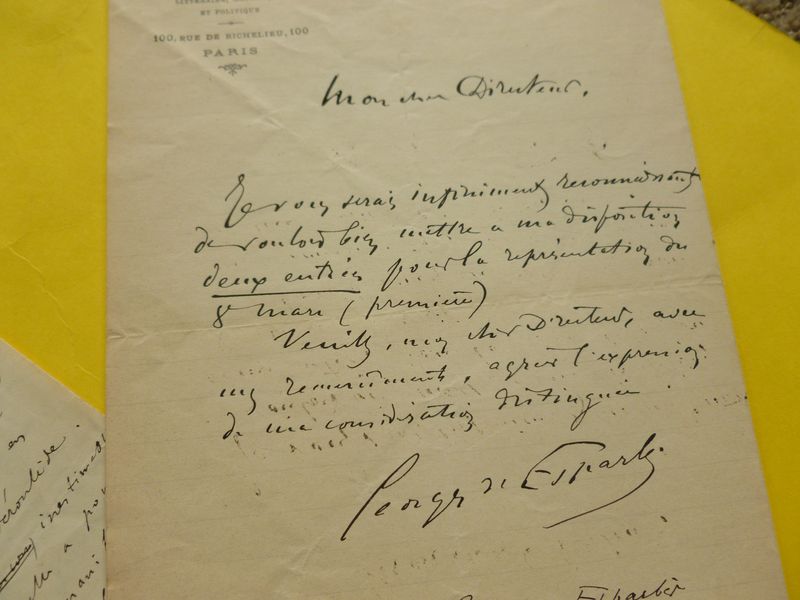 ET POLITIQUE
100, RUE DE RICHELIEU, 100
PARIS
Mon cher Directeur,
Je vous serais infiniment reconnaissant
de vouloir bien mettre à ma disposition
deux entrées pour la représentation du
8 mars (première)
Veuillez, mon cher Directeur, avec
mes remerciements, agréer l'expression
de ma considération distinguée.
Georges d'Esparbès
Esparbès
en
inestimable
a